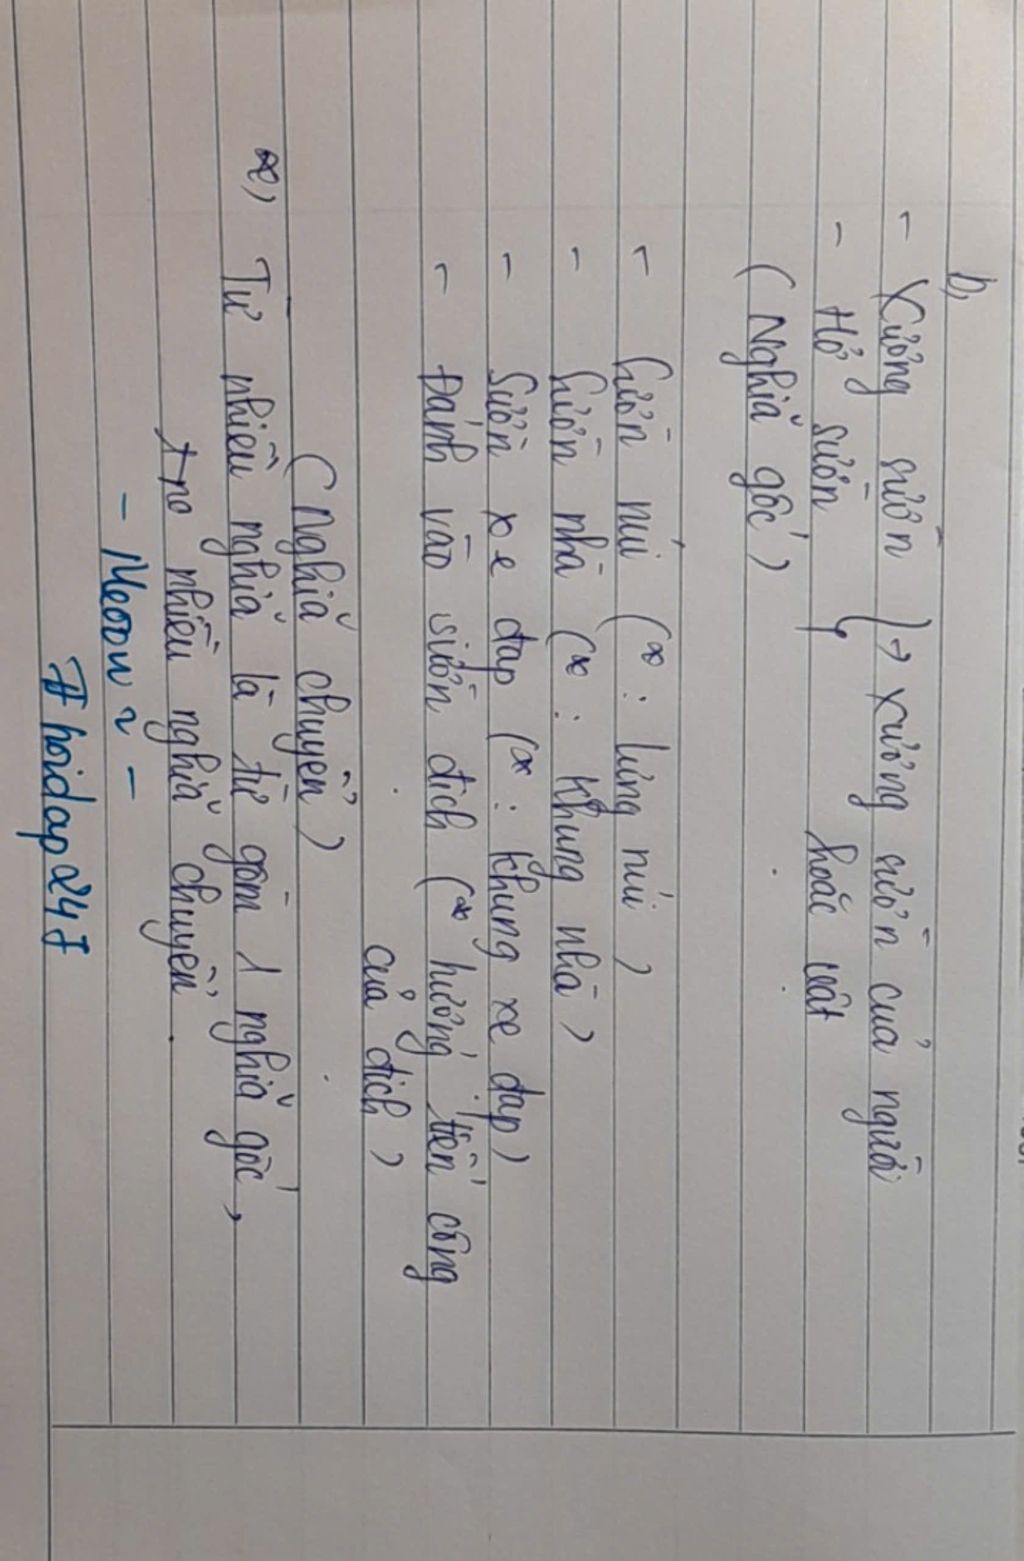 b,
- Xương sườn } → xương sườn của người
- Hở sườn hoặc vật
( Nghĩa gốc )
- Sườn núi (∞ : lưng núi )
- Sườn nhà (∞ : khung nhà )
- Sườn xe đạp (∞ : khung xe đạp )
- Đánh vào sườn địch (∞ hướng tiến công
của địch )
( Nghĩa chuyển )
∞) Từ nhiều nghĩa là từ gồm 1 nghĩa gốc,
nhiều nghĩa chuyển .
- Meoou ~ -
# hoidap247